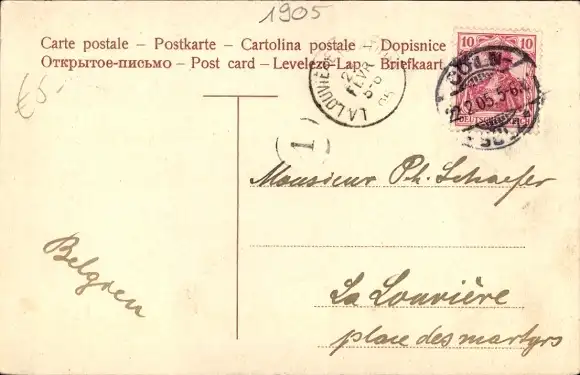 1905
Carte postale – Postkarte – Cartolina postale – Dopisnice
Открытое-письмо – Post card – Levelezö-Lap – Briefkaart
10 10
CÖLN
22.2.05.5-6
LA LOUVIÈRE
FEVR
5-6
05
€5-
1
Monsieur Ph. Schaefer
La Louvière
place des martyrs
Belgien